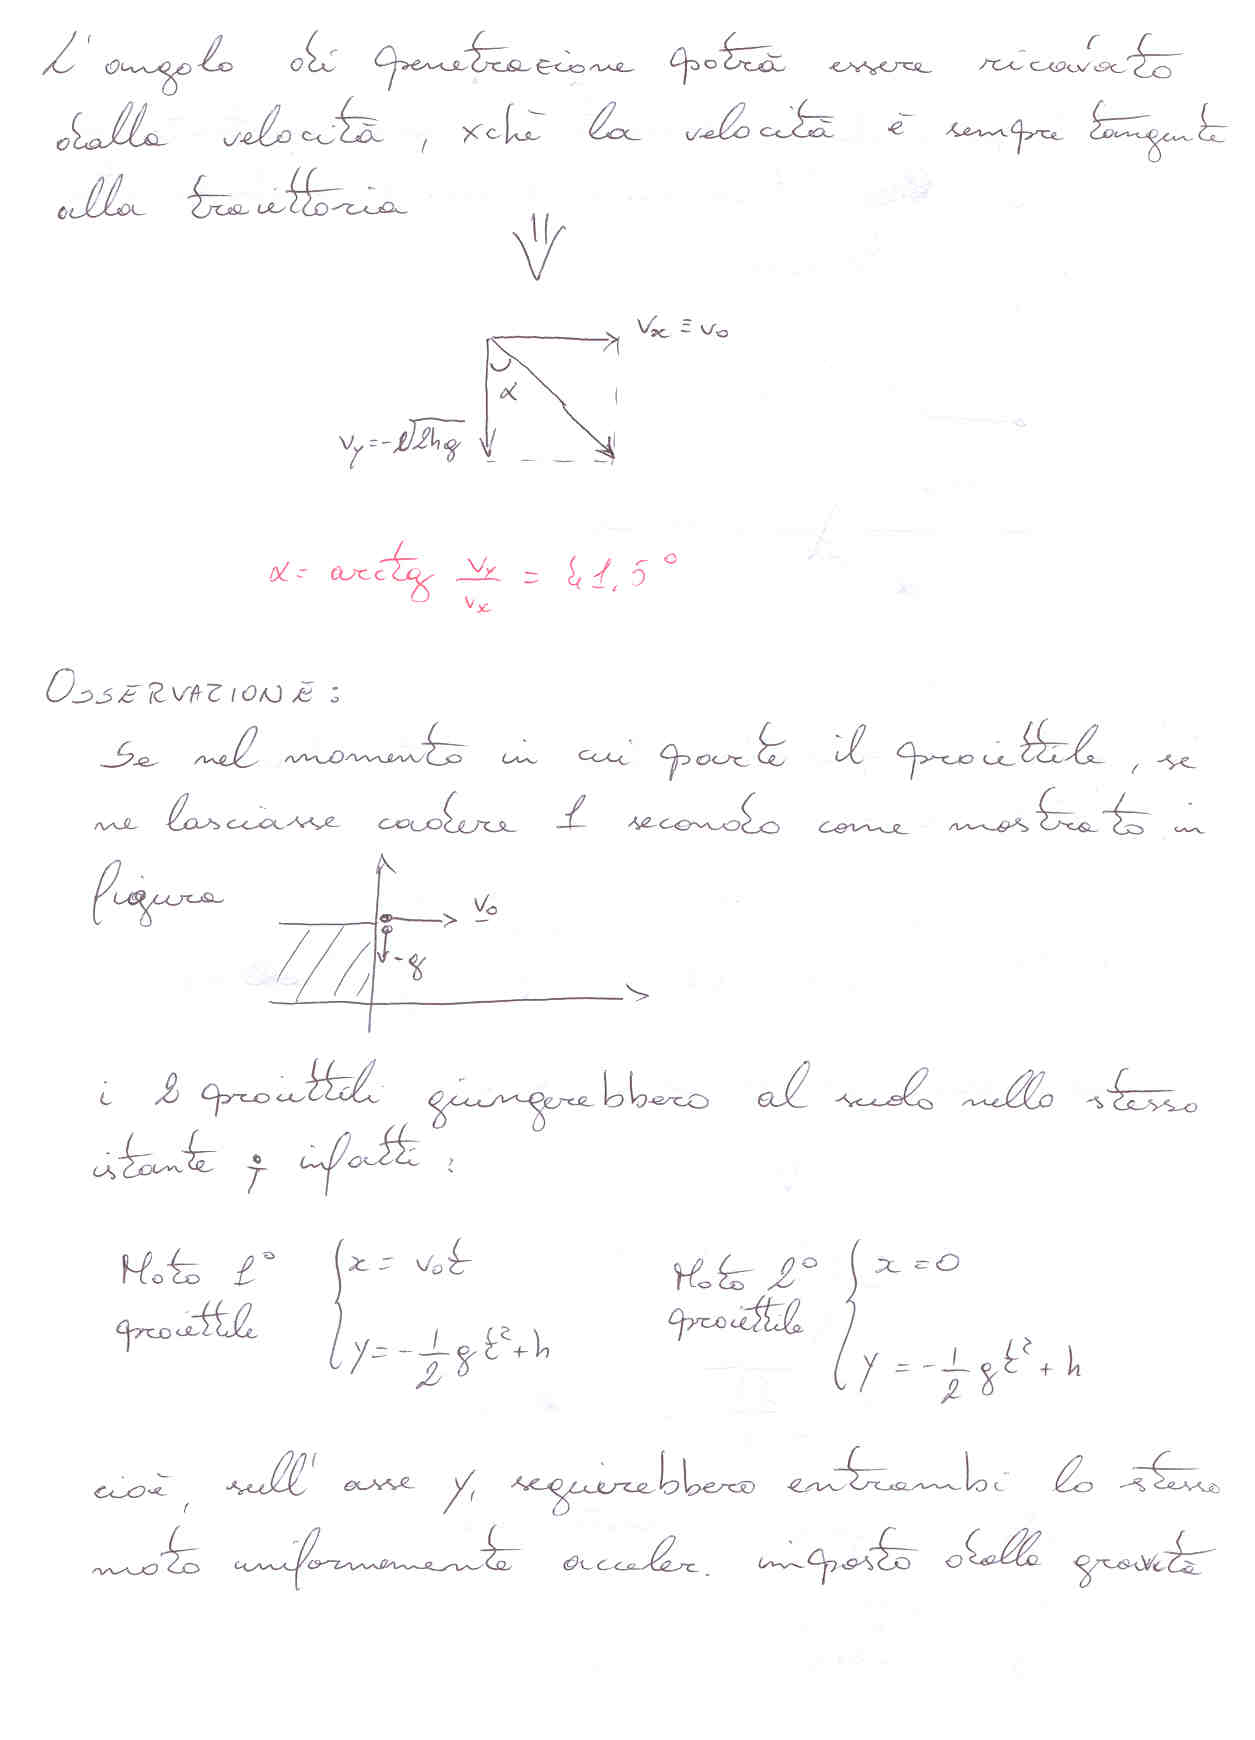 L'angolo di penetrazione potrà essere ricavato
dalla velocità, xchè la velocità è sempre tangente
alla traiettoria
Vx ≡ v0
α
vy = -√2hg
α = arctg vy/vx = 41,5°
OSSERVAZIONE:
Se nel momento in cui parte il proiettile, se
ne lasciasse cadere 1 secondo come mostrato in
figura
v0
-g
i 2 proiettili giungerebbero al suolo nello stesso
istante; infatti:
Moto 1° proiettile { x = v0t
y = -1/2 gt² + h
Moto 2° proiettile { x = 0
y = -1/2 gt² + h
cioè, sull'asse y, seguirebbero entrambi lo stesso
moto uniformemente acceler. imposto dalla gravità